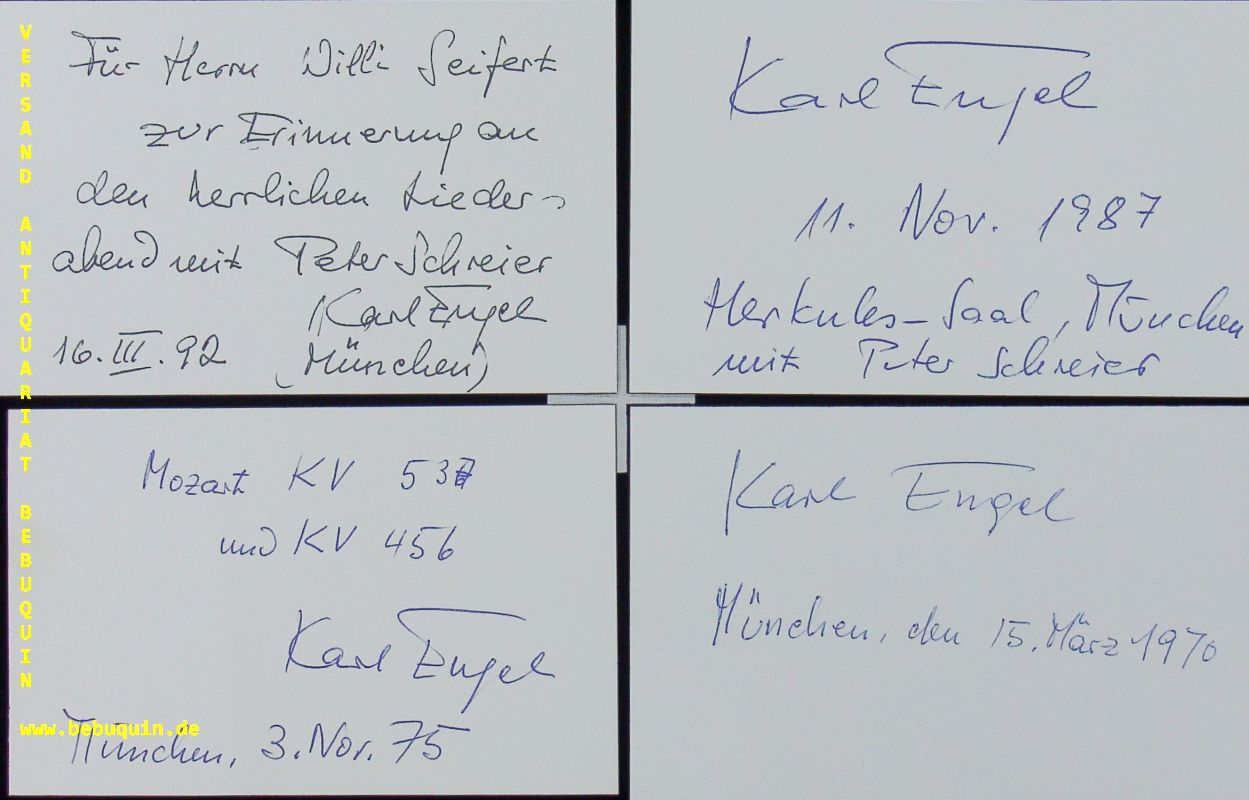 Für Herrn Willi Seifert
zur Erinnerung an
den herrlichen Lieder-
abend mit Peter Schreier
Karl Engel
16. III. 92 (München)
Karl Engel
11. Nov. 1987
Herkules-Saal, München
mit Peter Schreier
Mozart KV 537
und KV 456
Karl Engel
München, 3. Nov. 75
Karl Engel
München, den 15. März 1970
VERSAND ANTIQUARIAT BEBUQUIN
www.bebuquin.de